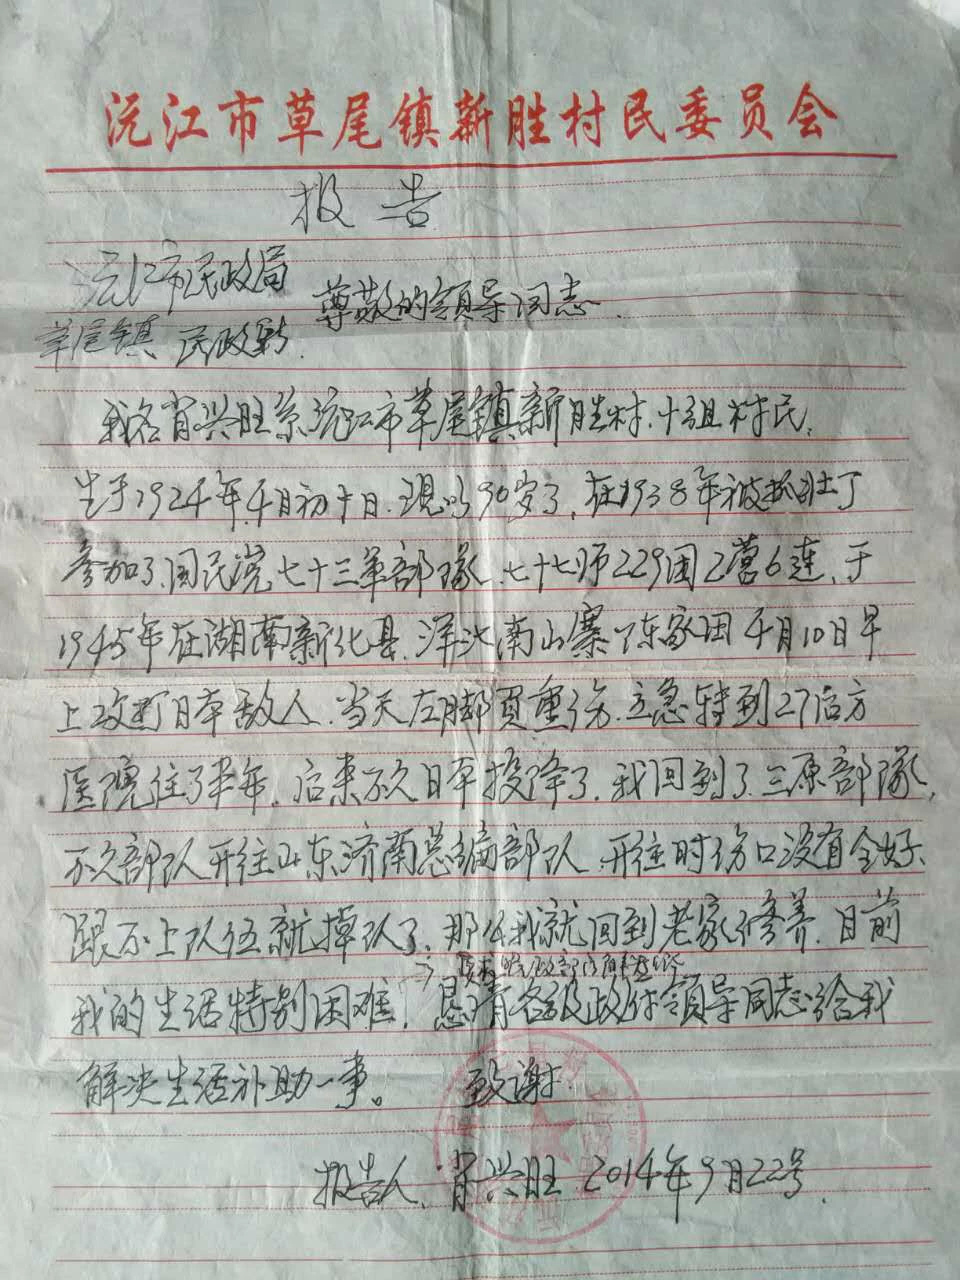 沅江市草尾镇新胜村民委员会
报告
沅江市民政局
尊敬的领导同志.
草尾镇 民政办.
我名肖兴旺系沅江市草尾镇新胜村.十组村民,
生于1924年.4月初十日.现以90岁了,在1938年被抓壮丁
参加了.国民党七十三军部隊.七十七师229团2营6连,于
1945年在湖南新化县.洋沙南山寨下陈家田4月10日早
上攻打日本敌人.当天左脚负重伤.立急转到27后方
医院住了半年.后来不久日本投降了.我回到了三原部隊,
不久部队开往山东济南总编部队.开往时伤口没有全好.
跟不上队伍就掉队了.那么我就回到老家修养.目前
要求民政部门解决
我的生活特别困难,恳请各级政府领导同志给我
解决生活补助一事。 致谢.
报告人.肖兴旺 2014年9月22号.